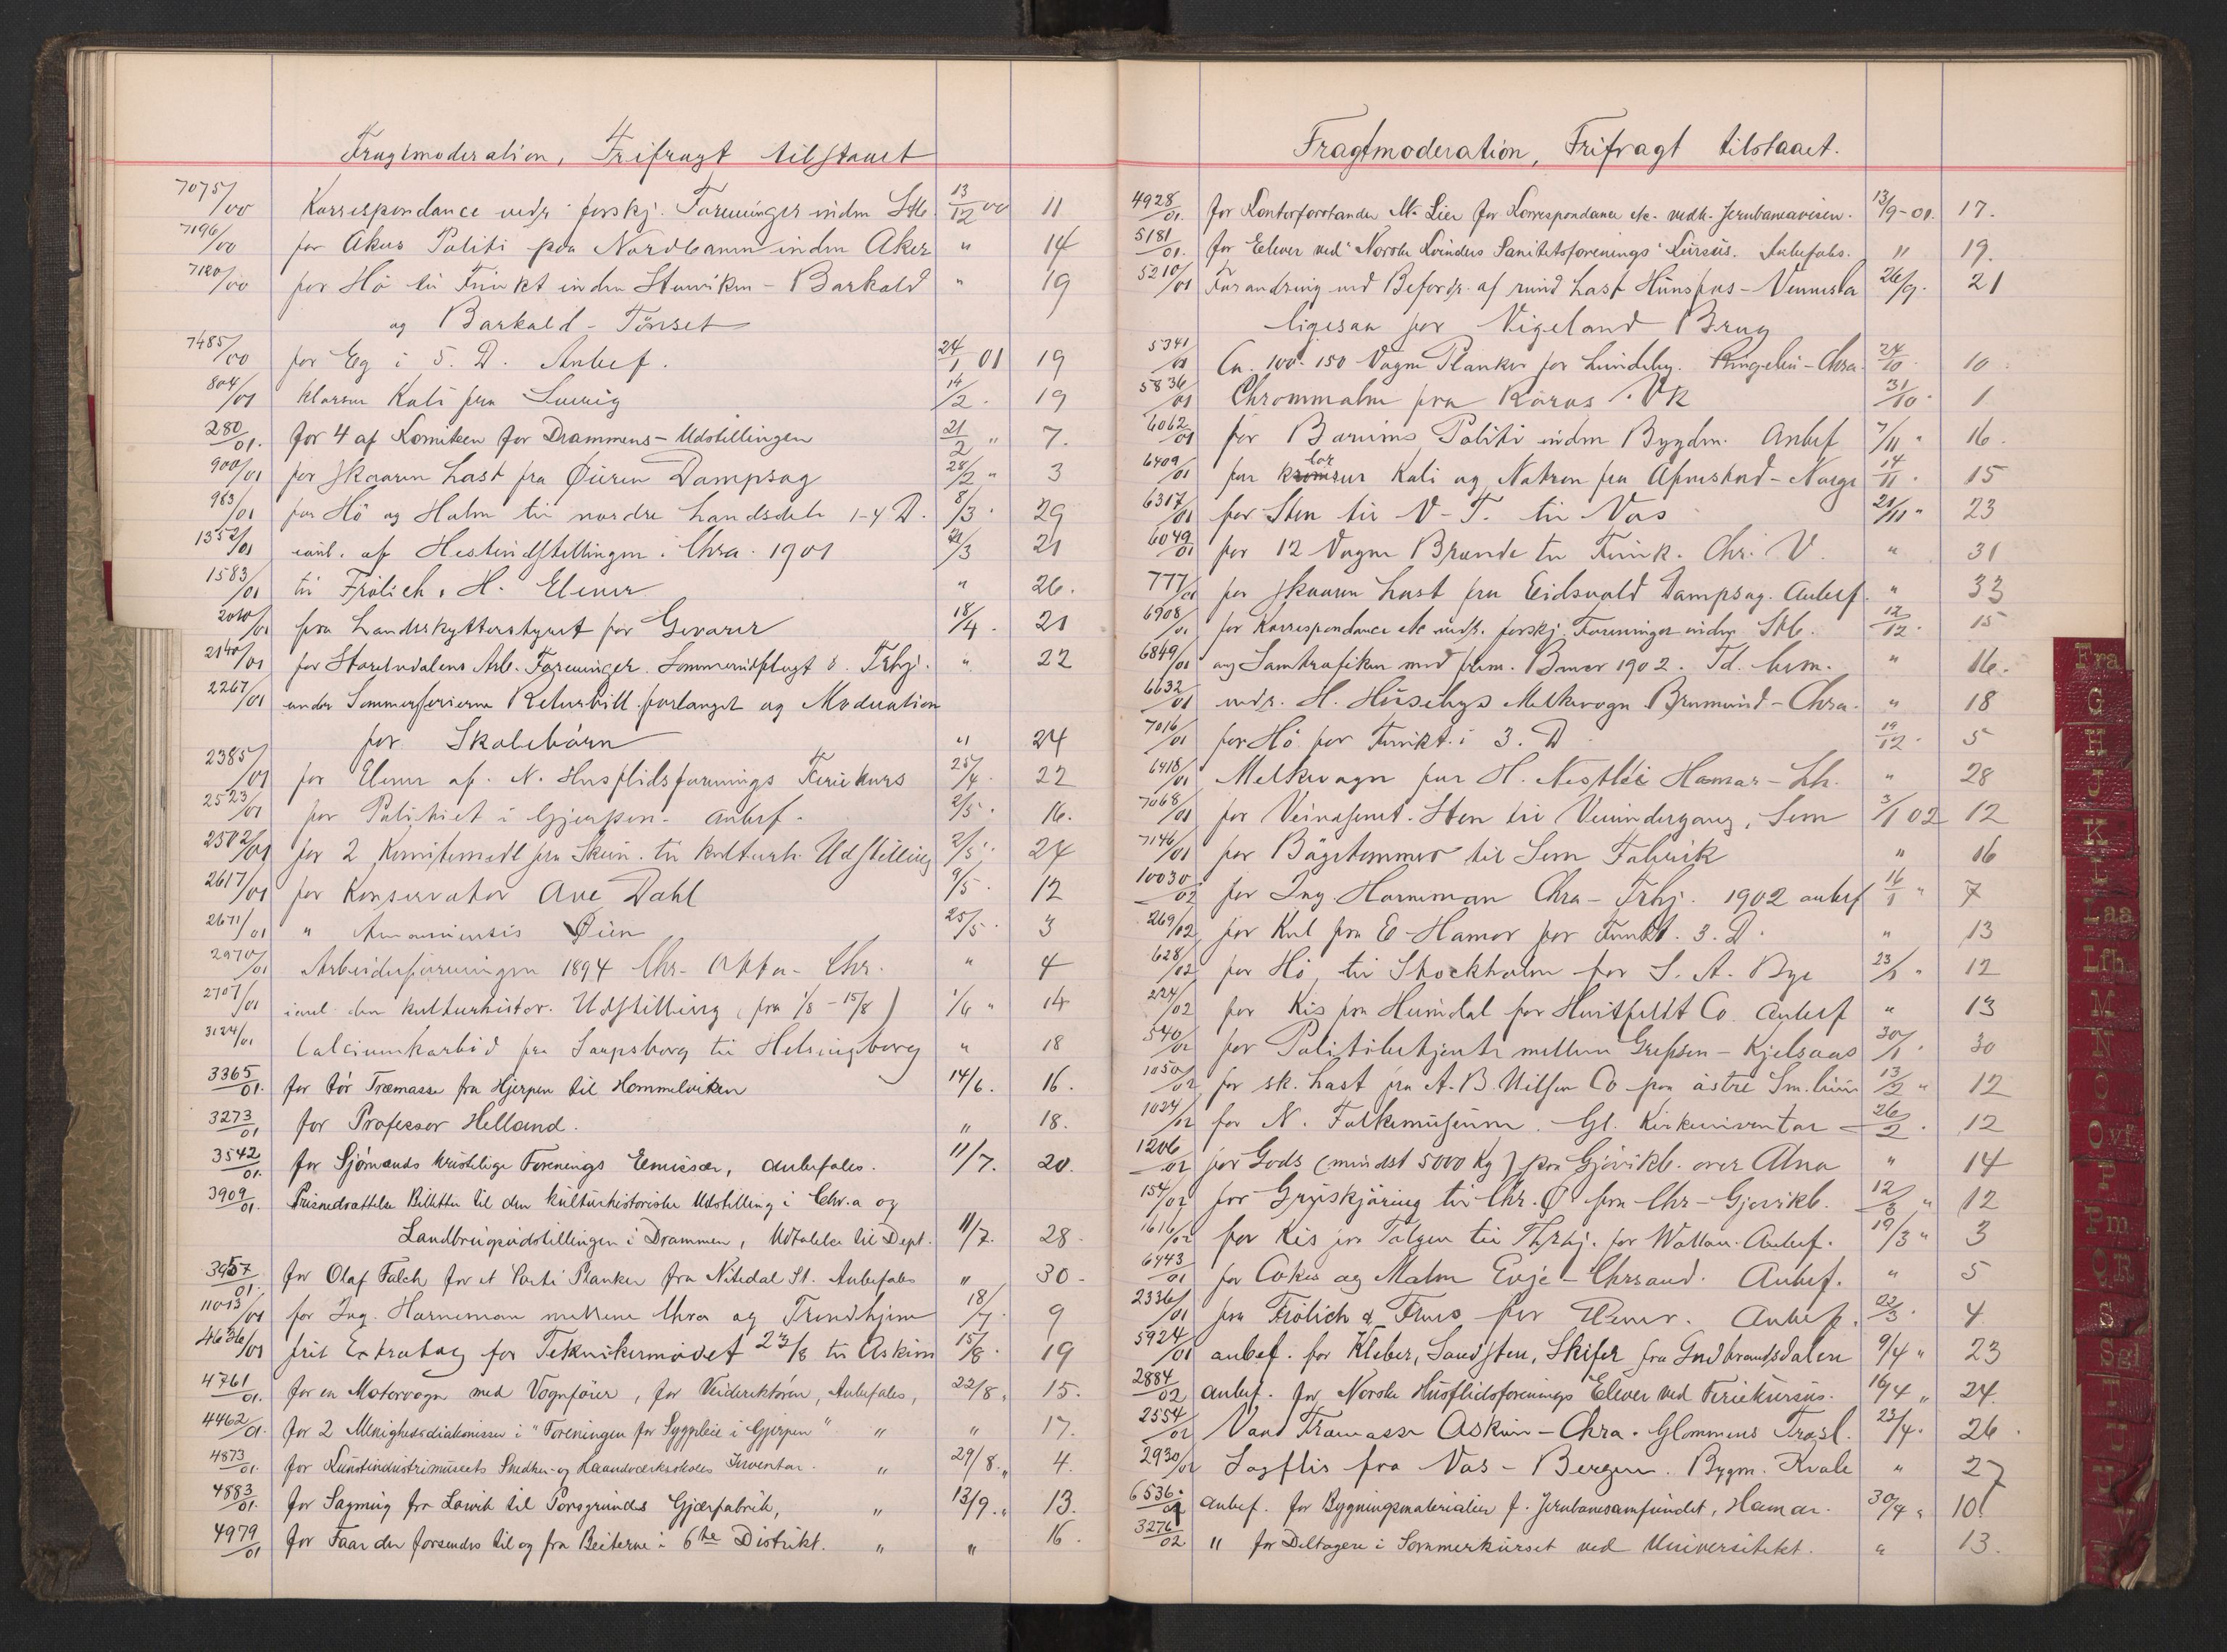 Fragtmoderation, Frifragt tilstaaet
7075/00 Korrespondance vedr. forskj. Foreninger inden Stb. 13/12 00 11
7196/00 for Akers Politi paa Nordbanen inden Aker " 14
7120/00 for Hö til Funkt inden Stenviken - Barkald " 19
og Barkald - Tönset
7485/00 for Eg i 5. D. Anbef. 24/1 01 19
804/01 klorsur Kali fra 14/2 19
280/01. for 4 af Komiteen for Drammens-Udstillingen 21/2 " 7.
900/01 for skaaren Last fra Øieren Dampsag 28/2 " 3
963/01 for Hö og Halm til nordre Landsdele 1-4 D. 8/3 29
1352/01 anl. af Hesteudstillingen i Chra. 1901 /3 21
1583/01 til Frölich, H. Elever " 26.
2010/01 fra Landsskytterstyret for Gevarer 18/4. 21
2140/01 for Stoendalens Arb. Foreninger. Sommerudflugt t. Trhj. " 22
2267/01 under Sommerferierne Returbill. forlanget og Moderation
for Skolebörn " 24
2385/01 for Elever af N. Husflidsforenings Feriekurs 25/4. 22
2523/01 for Politiet i Gjerpen. anbef. 2/5. 16.
2502/01 for 2 Komitemedl fra Skien til kulturh. Udstilling 2/5. 24
2617/01 for Konservator Ove Dahl 9/5. 12
2671/01 " Amanuensis Øien 25/5. 3
2970/01 Arbeiderforeningen 1894 Chr. - Otta - Chr. " 4
2707/01 anl. den kulturhistor. Udstilling (fra 1/8 - 15/8) 1/6 " 14
3124/01 Calciumkarbid fra Sarpsborg til Helsingborg " 18
3365/01. for tör Træmasse fra Hjerpen til Hommelviken 14/6. 16.
3273/01 for Professor Helland. " 18.
3542/01. for Sjömands kristelige Forenings Emissær, anbefales. 11/7. 20.
3909/01. Prisnedsættelse Billetter til den kulturhistoriske Udstilling i Chr.a og
Landbrugsudstillingen i Drammen, Udtalelse til Dept. 11/7. 28.
3957/01. for Olaf Falch for et Parti Planker fra Nitedal St. Anbefales " 30.
11013/01 for Ing. Horneman mellem Chra og Trondhjem 18/7. 9
4636/01 frit Extratog for Teknikermödet 23/8 til Askim 15/8. 19
4761/01. for en Motorvogn med Vognförer, for Veidirektören, Anbefales, 22/8. 15.
4462/01. for 2 Menighedsdiakonisser i "Foreningen for Sygepleie i Gjerpen" " " 17.
4873/01. for Kunstindustrimuseets Snedker- og Haandværksskoles Inventar. " 29/8. " 4.
4883/01. for Sagmug fra Laurvik til Porsgrunds Gjærfabrik, " 13/9. " 13.
4979/01 for Faar der forsendes til og fra Beiterne i 6te Distrikt. " " 16.
Fragtmoderation, Frifragt tilstaaet.
4928/01. for Kontorforstander M. Lier for Korrespondance etc. vedk. Jernbaneavisen. 13/9-01. 17.
5181/01. for Elever ved "Norske Kvinders Sanitetsforenings" Kursus. Anbefales. " 19.
5210/01 Forandring ved Befordr. af rund Last Hunsfos - Vennesla 26/9. 21
ligesaa for Vigeland Brug
5341/01 Ca. 100-150 Vogne Planker for Lundeby. - Chra. 24/10. 10.
5836/01 Chrommalm fra Röros . V R 31/10. 1
6062/01 for Bærums Politi inden Bygden. Anbef 7/11 " 16.
6409/01 for klorsur Kali og Natron fra 14/11. 15
6317/01 for Sten til V-T. til Vos 21/11 " 23
6049/01 for 12 Vogne Brænde til Funk. Chr. V. " 31
777/01 for skaaren Last fra Eidsvold Dampsag. Anbef. " 33
6908/01 for Korrespondance etc vedr. forskj. Foreninger inden Stb. 12/12. 15
6849/01 ang Samtrafiken med frem. Baner 1902. Td. hem. " 16.
6632/01 vedr. H. Huusebys Melkevogn Brumund - Chra. " 18
7016/01 for Hö for Funkt. i 3. D. 19/12. 5
6418/01 Melkevogn for H. Nestlé Hamar - Lh. " 28
7068/01 for Veivæsenet. Sten til Veiundergang, Sem 3/1 02 12
7146/01 for Bögetömmer til Sem Fabrik " 16
10030/02 for Ing. Horneman Chra - Trhj. 1902 anbef 16/1 " 7
269/02 for Kul fra E - Hamar for Funkt. 3. D. " 13
628/02 for Hö, til Stockholm for S. A. Bye 23/1 " 12
224/02 for Kis fra Hurudal for Huitfeldt Co. anbef " 13
540/02 for Politibetjente mellem Grefsen - Kjelsaas 30/1. 30
1050/02 for sk. Last fra A. B. Nilsen Co paa östre Sm.linie 13/2 " 12
1024/02 for N. Folkemuseum. Gl. Kirkeinventar 26/2. 12
1206/02 for Gods (mindst 5000 Kg) fra Gjövikb. over Alna " 14
154/02 for Gruskjöring til Chr. Ø. fra Chr - Gjövikb. 12/3 " 12
1616/02 for Kis fra Tolgen til Thrhj. for Wattne. Anbef. 19/3 " 3
6443/01 for Cokes og Malm Evje - Chrsand. Anbef. " 5
2336/01 fra Frölich & Frues for Elever. Anbef. 22/3. 4
5924/01 anbef. for Kleber, Sandsten, Skifer fra Gudbrandsdalen 9/4 " 23
2884/02 anbef. for Norske Husflidsforenings Elever ved Feriekursus. 16/4 " 24.
2554/02 Vaad Træmasse Askim - Chra. Glommens Træsl. 23/4. 26.
2930/02 Sagflis fra Vos - Bergen. Bygm. Kvale " 27
6536/01 anbef. for Bygningsmaterialier f. Jernbanesamfundet, Hamar. 30/4 " 10.
3276/02 " for Deltagere i Sommerkurset ved Universitetet. " 13.
Fra
G
H
J
K
L
Laa
Lfh.
M
N
O
Ovf.
P
Pm.
QR
S
Sgl
T
U
V